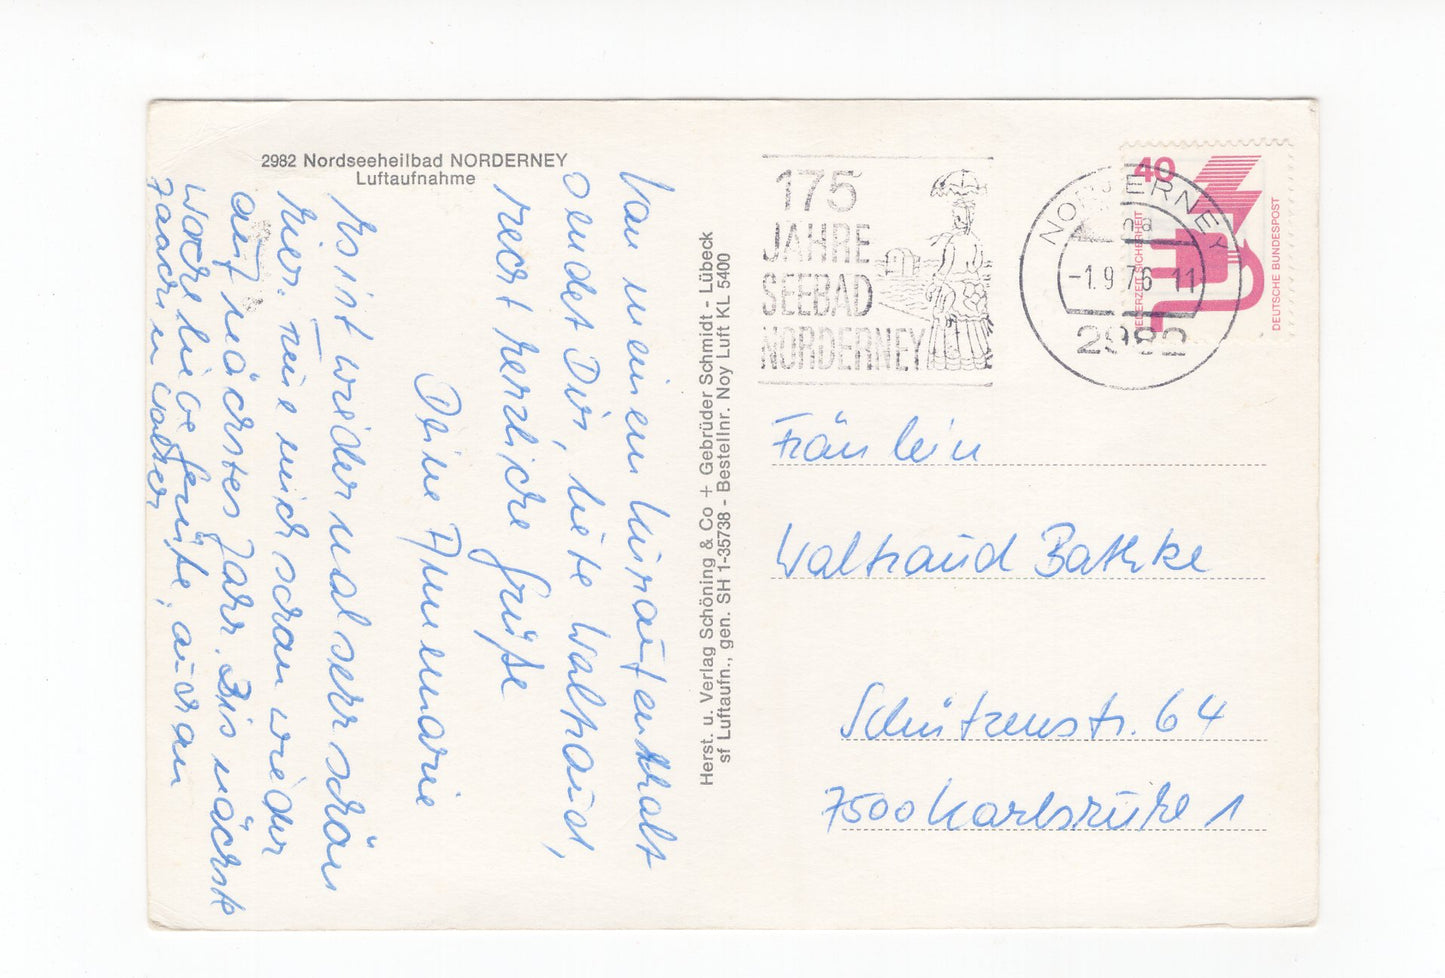 2982 Nordseeheilbad NORDERNEY
Luftaufnahme
Von meinem Kuraufenthalt
sendet Dir, liebe Waltraud,
recht herzliche Grüße
Deine Annemarie
Es ist wieder mal sehr schön
hier. Freue mich schon wieder
auf nächstes Jahr. Bis nächste
Woche liebe Grüße, auch an
Herst. u. Verlag Schöning & Co + Gebrüder Schmidt - Lübeck
sf Luftaufn., gen. SH 1-35738 - Bestellnr. Noy Luft KL 5400
175
JAHRE
SEEBAD
NORDERNEY
NORDERNEY
-1.9.76-11
2982
40
JEDERZEIT SICHERHEIT
DEUTSCHE BUNDESPOST
Fräulein
Waltraud Bathke
Schützenstr. 64
7500 Karlsruhe 1